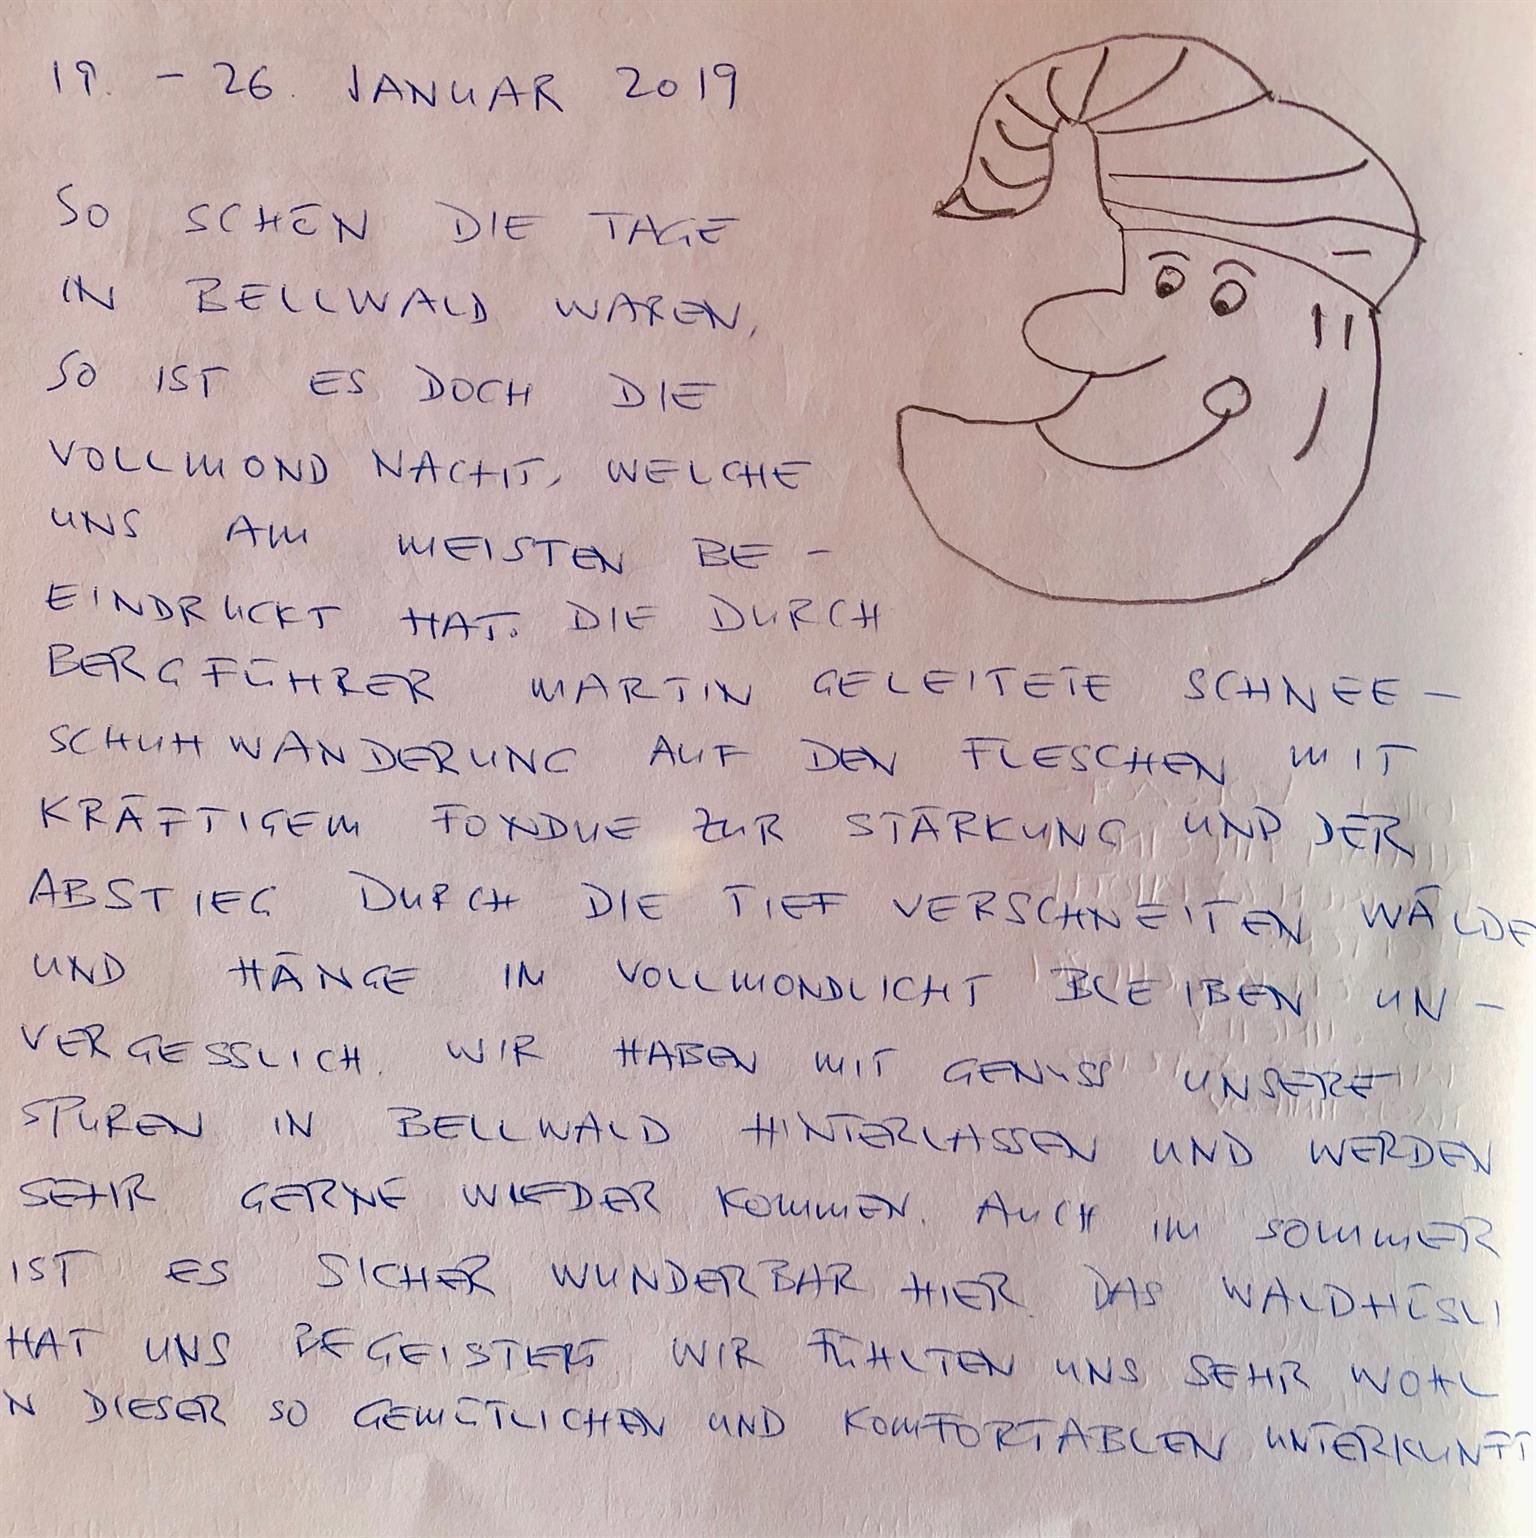 19. - 26. JANUAR 2019
SO SCHÖN DIE TAGE
IN BELLWALD WAREN,
SO IST ES DOCH DIE
VOLLMOND NACHT, WELCHE
UNS AM MEISTEN BE -
EINDRUCKT HAT. DIE DURCH
BERGFÜHRER MARTIN GELEITETE SCHNEE -
SCHUHWANDERUNG AUF DEN FLESCHEN MIT
KRÄFTIGEM FONDUE ZUR STÄRKUNG UND DER
ABSTIEG DURCH DIE TIEF VERSCHNEITEN WÄLDE
UND HÄNGE IM VOLLMONDLICHT BLEIBEN UN -
VERGESSLICH. WIR HABEN MIT GENUSS UNSERE
SPUREN IN BELLWALD HINTERLASSEN UND WERDEN
SEHR GERNE WIEDER KOMMEN. AUCH IM SOMMER
IST ES SICHER WUNDERBAR HIER. DAS WALDHÜSLI
HAT UNS BEGEISTERT WIR FÜHLTEN UNS SEHR WOHL
N DIESER SO GEMÜTLICHEN UND KOMFORTABLEN UNTERKUNFT